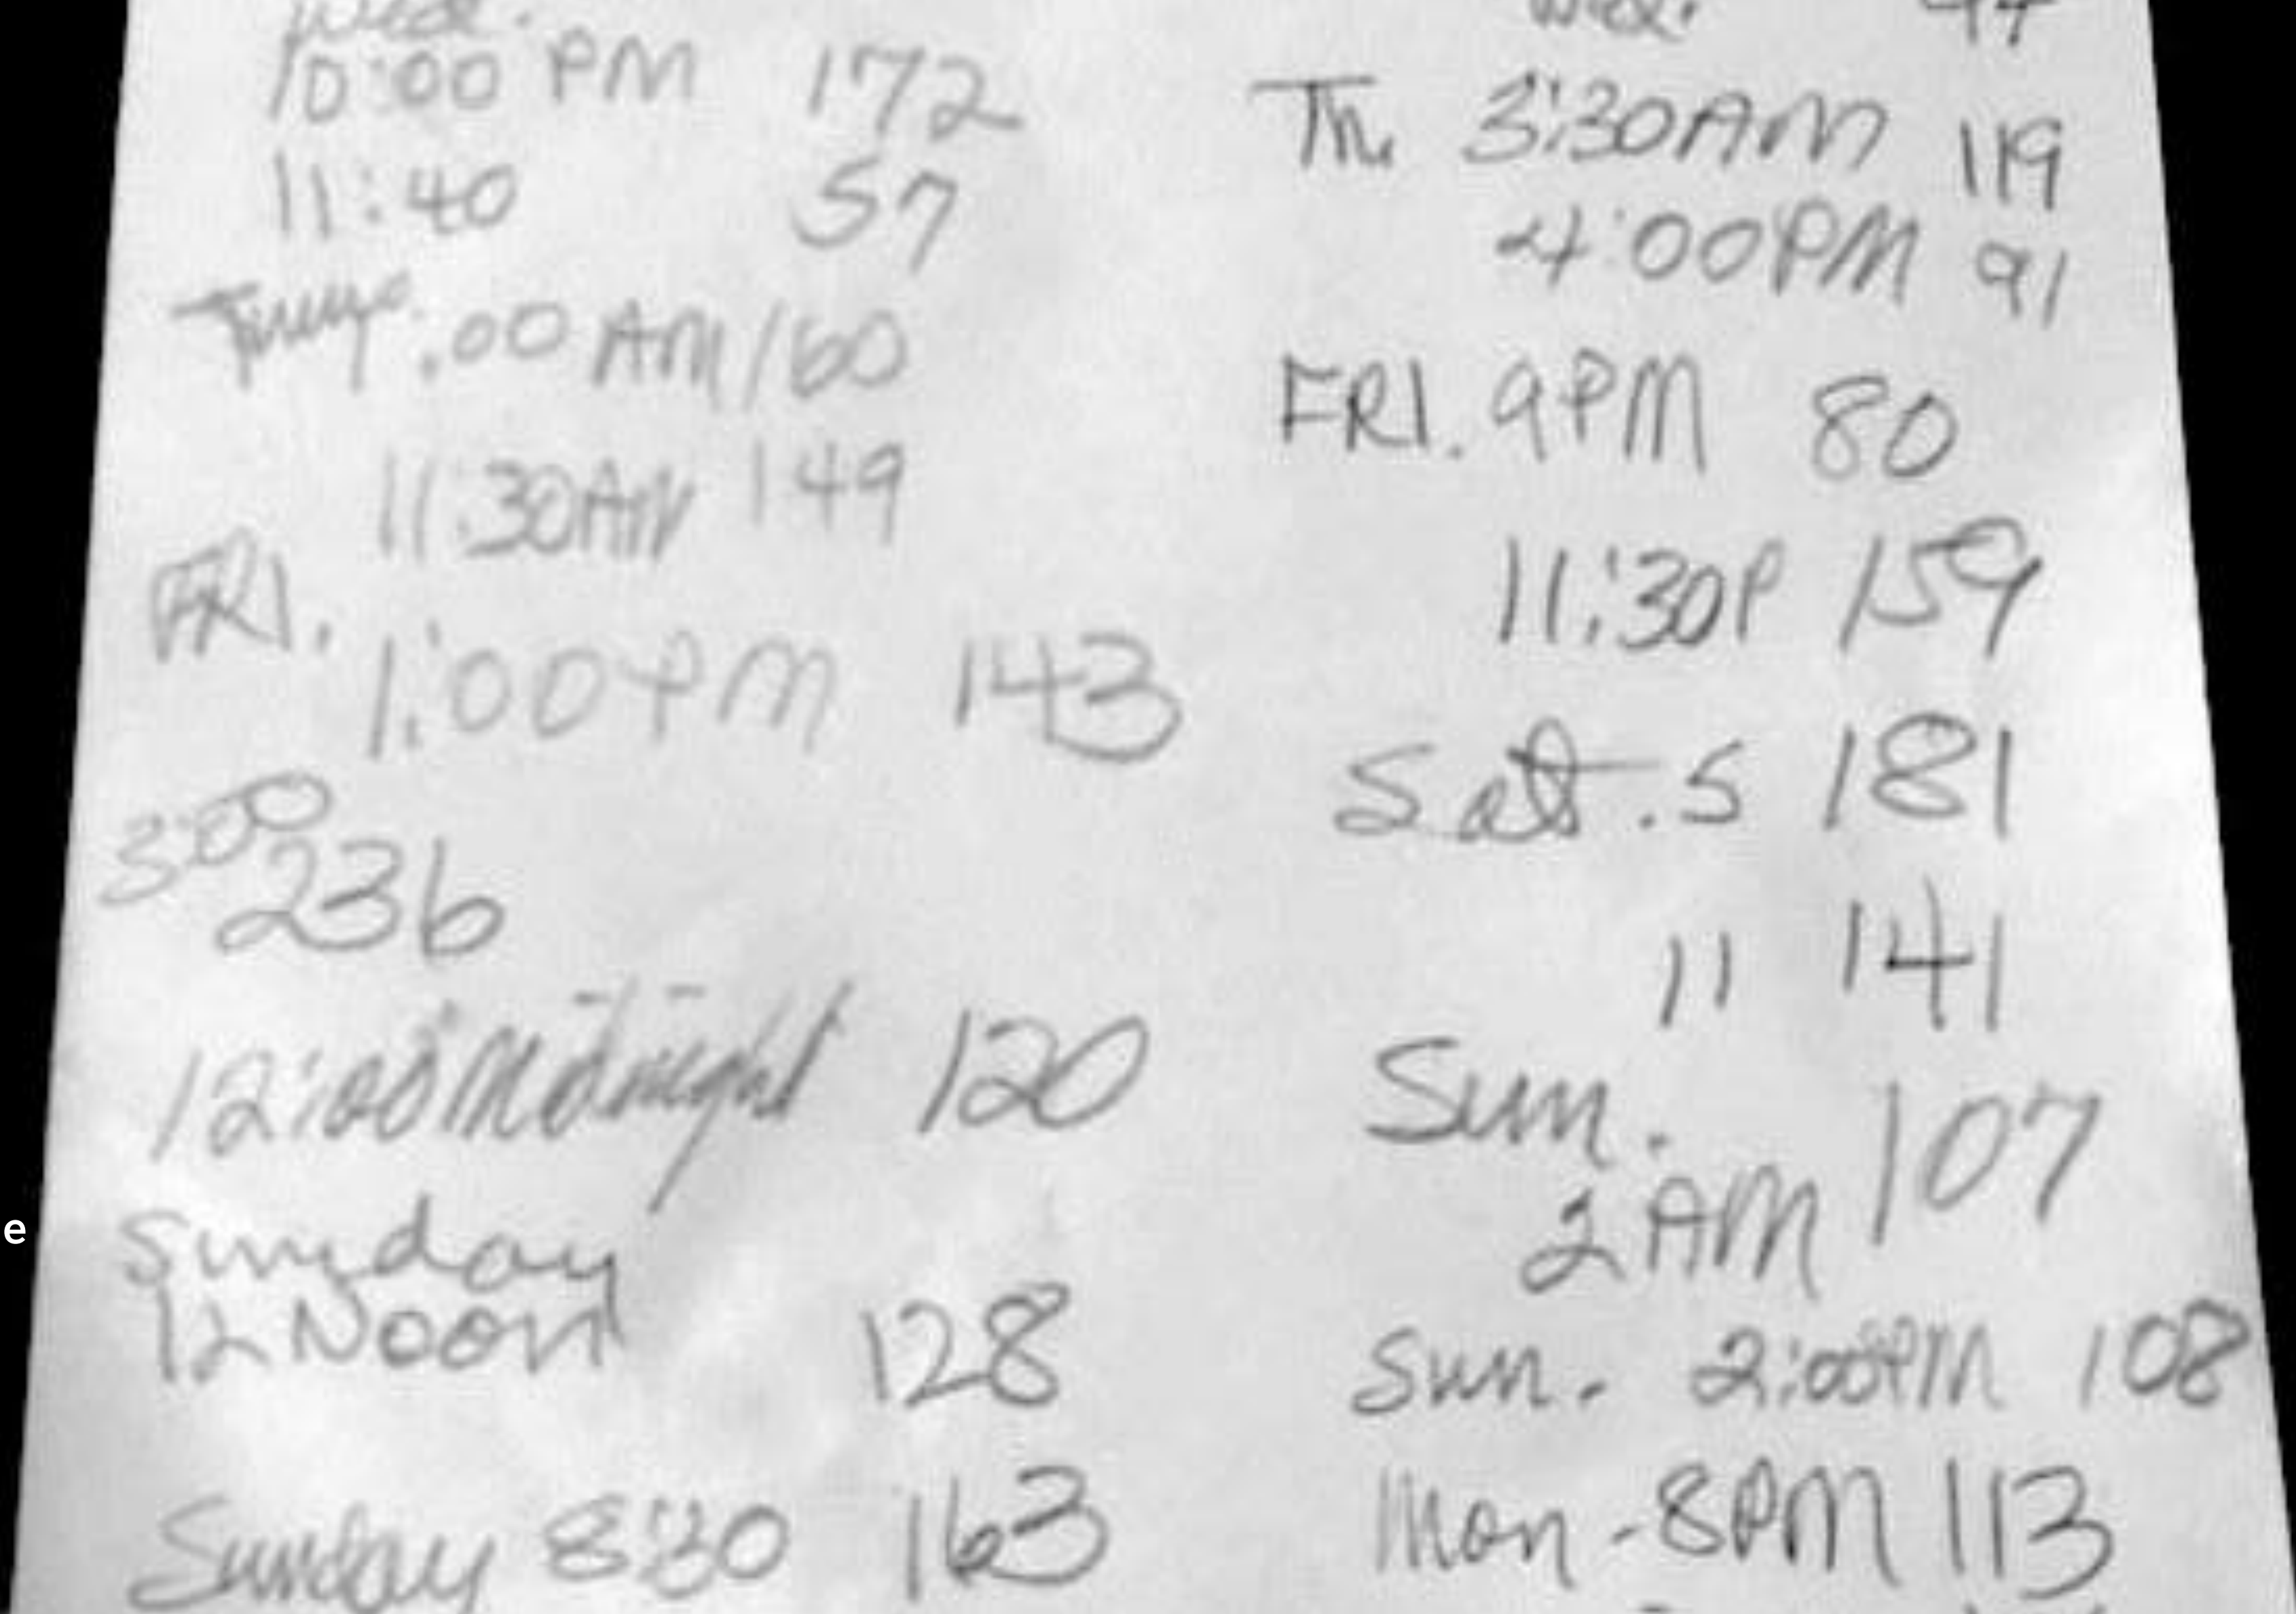 Wed.
10:00 PM 172
11:40 57
.00 AM 160
11:30AM 149
FRI.
1:00 PM 143
3:00
236
12:00 Midnight 120
Sunday
12 Noon 128
Sunday 8:30 163
Wed. 94
Th 3:30AM 119
4:00PM 91
FRI. 9PM 80
11:30P 159
Sat. 5 181
11 141
Sun.
2 AM 107
Sun. 2:00PM 108
Mon - 8PM 113
e